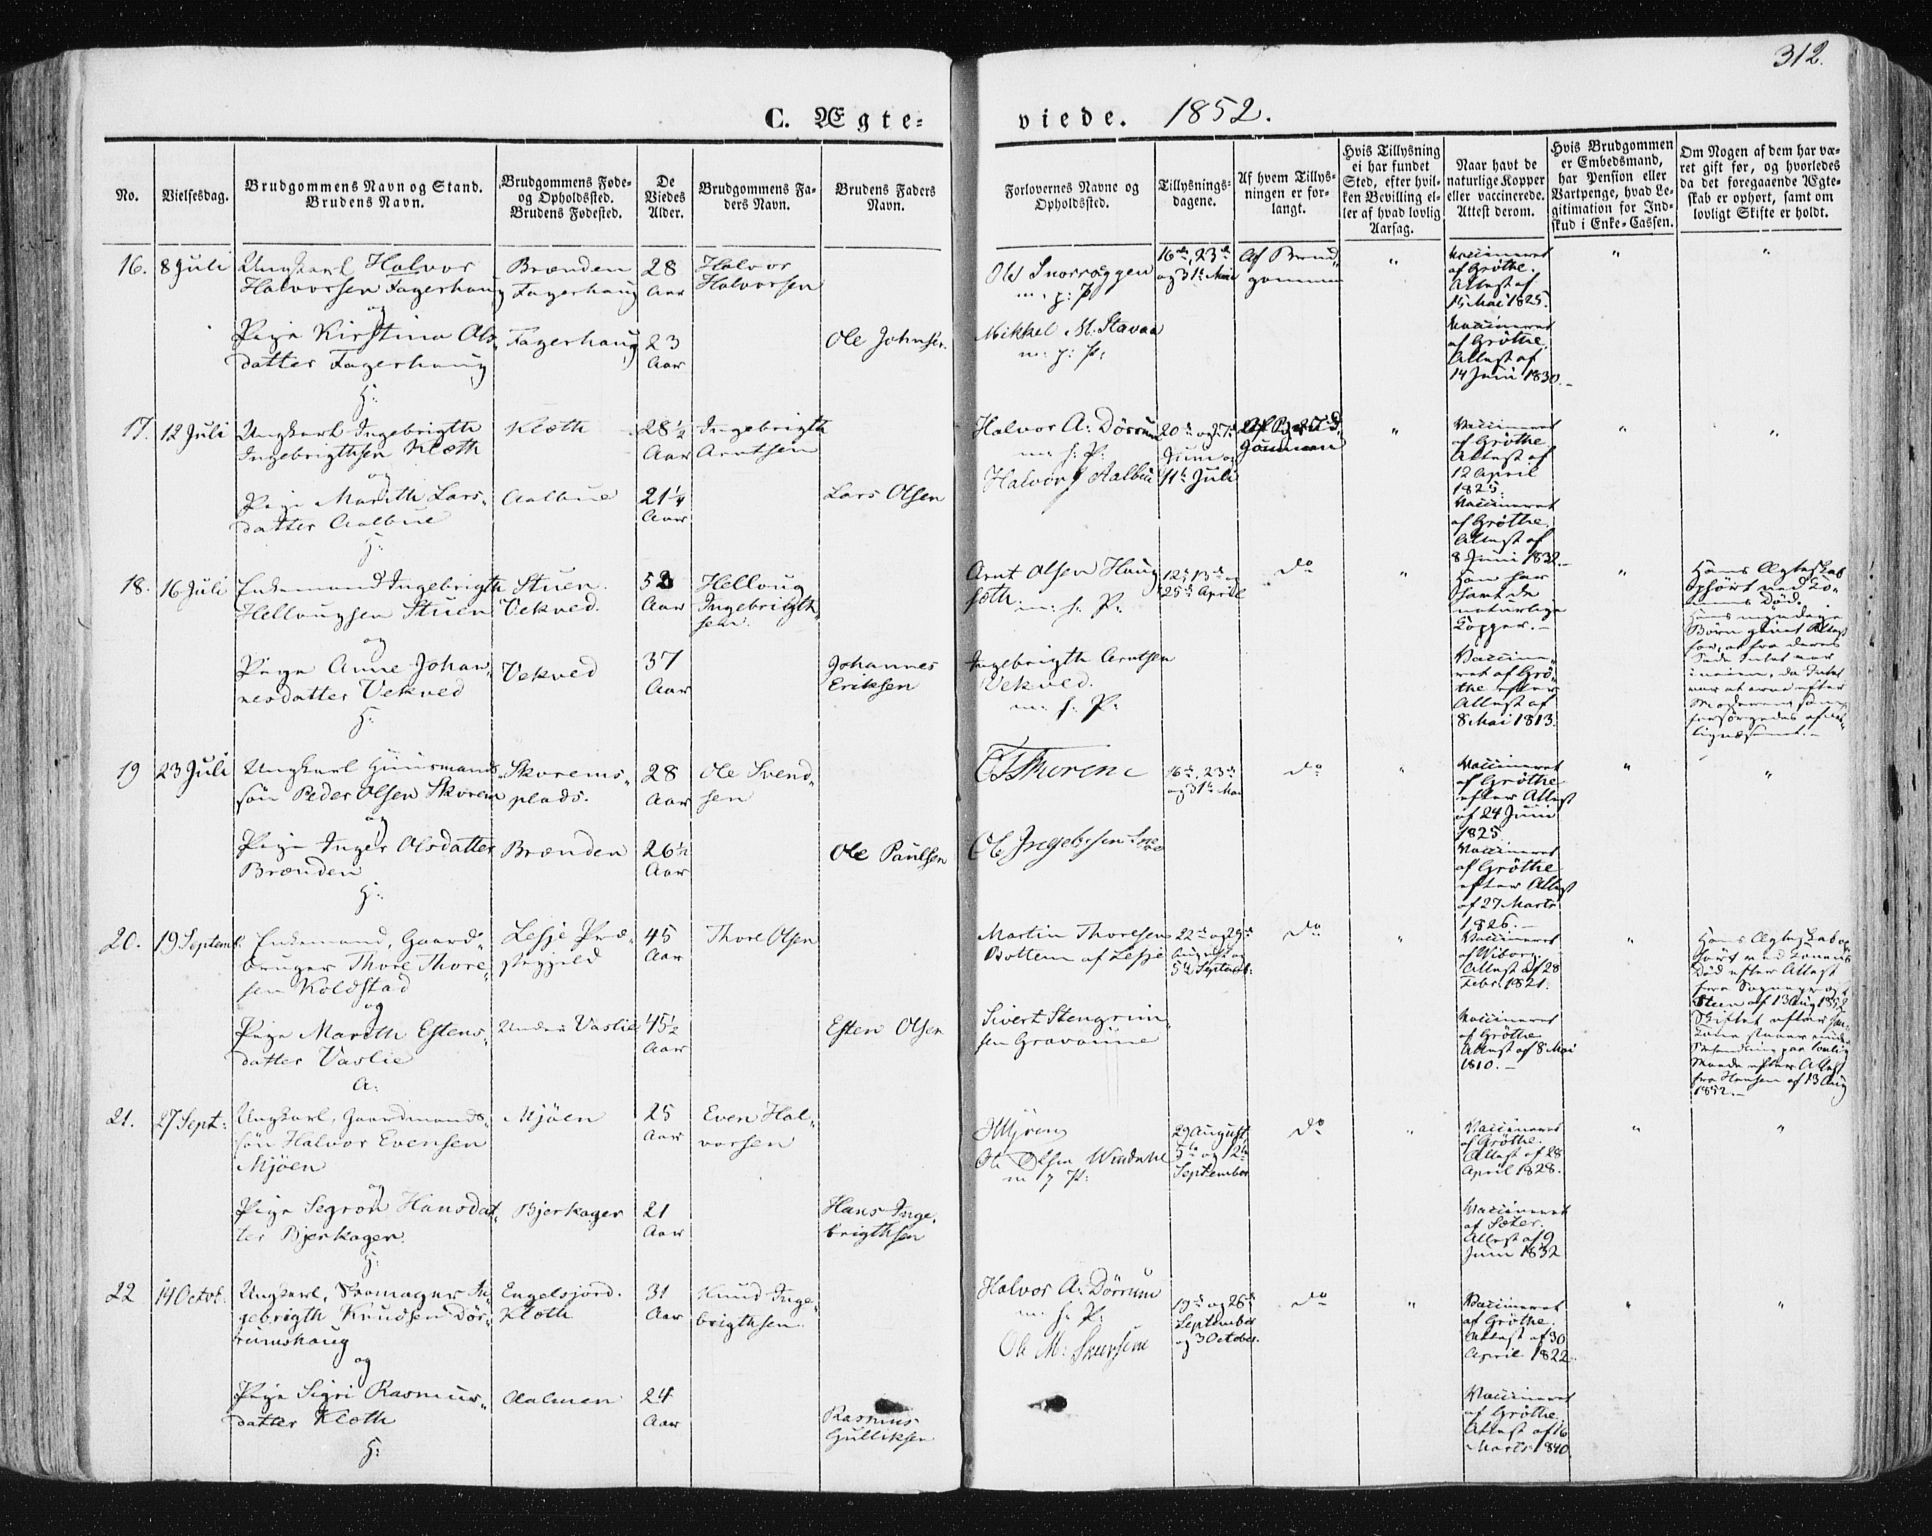 312.
C. Ægte= viede. 1852.
No.
Vielsesdag.
Brudgommens Navn og Stand.
Brudens Navn.
Brudgommens Føde-
og Opholdssted.
Brudens Fødested.
De
Viedes
Alder.
Brudgommens Fa-
ders Navn.
Brudens Faders
Navn.
Forlovernes Navne og
Opholdssted.
Tillysnings-
dagene.
Af hvem Tillys-
ningen er for-
langt.
Hvis Tillysning
ei har fundet
Sted, efter hvil-
ken Bevilling el-
ler af hvad lovlig
Aarsag.
Naar havt de
naturlige Kopper
eller vaccinerede.
Attest derom.
Hvis Brudgommen
er Embedsmand,
har Pension eller
Vartpenge, hvad Le-
gitimation for Ind-
skud i Enke-Cassen.
Om Nogen af dem har væ-
ret gift før, og hvorledes
da det foregaaende Ægte-
skab er ophørt, samt om
lovligt Skifte er holdt.
16. 8 Juli
Ungkarl Halvor
Halvorsen Fagerhaug
og
Pige Kirstina Ols-
datter Fagerhaug
H:
Brænden
Fagerhaug
Fagerhaug
28
Aar
23
Aar
Halvor
Halvorsen
Ole Johnsen
Ole Snorroggen
m: p: P:
Mikkel M. Stavaa
m: p: P:
16de, 23de
og 31te Mai
Af Brud
gommen
"
Vaccineret
af Grøthe.
Attest af
15 Mai 1825.
Vaccineret
af Grøthe.
Attest af
14 Juni 1830.-
"
"
17. 12 Juli
Ungkarl Ingebrigth
Ingebrigthsen Kleth
og
Pige Marith Lars-
datter Aalbue
H:
Kleth
Aalbue
28 1/2
Aar
21 1/4
Aar
Ingebrigth
Arntsen
Lars Olsen
Halvor A: Dørrum
m: f: P:
Halvor J Aalbue
20de og 27de
Juni og
11te Juli
Af Brud
gommen
"
Vaccineret
af Grøthe
Attest af
12 April
1825.
Vaccineret
af Grøthe.
Attest af
8 Juni 1832.-
"
"
18. 16 Juli
Enkemand Ingebrigth
Hellougsen Stuen
og
Pige Anne Johan-
nesdatter Vekved
H:
Stuen.
Vekved.
Vekved
Aar
37
Aar
Helloug
Ingebrigth-
sen.
Johannes
Eriksen
Arnt Olsen Haug
m: f: P:
Ingebrigth Arntsen
Vekved.
m: f: P:
25de April
Do
"
Han har
havt de
naturlige
Kopper.-
Vaccine-
ret af Grø-
the efter
Attest af
8 Mai 1813.
"
Hans Ægteskab
ophørt ved Ko-
nens Død.
Hans myndige
Børn
19 23 Juli
Ungkarl Huusmands-
søn Peder Olsen Skorem
og
Pige Inger Olsdatter
Brænden
H:
Skorems-
plads.
Brænden
28
Aar
26 1/2
Aar
Ole Svend-
sen
Ole Paulsen
16de, 23de
og 31te Mai
Do
"
Vaccineret
af Grøthe
efter Attest
af 24 Juni
1825
Vaccineret
af Grøthe
efter Attest
af 27 Marts
1826.-
"
"
20. 19 Septemb.
Enkemand, Gaard-
bruger Thore Thore-
sen Koldstad
og
Pige Marith Estens-
datter Vaslie
A:
Lesje Præ-
stegjeld
Vaslie
45
Aar
45 1/2
Aar
Thore Olsen
Esten Olsen
Martin Thoresen
Bottem af Lesje
Sivert Stengrim-
sen Gravaune
22de og 29de
August og
5te Septemb:
Do
"
Vaccineret
af Wiborg.
Attest af 28
Febr. 1821.
Vaccineret
af Grøthe
Attest af 8 Mai
1810.-
"
Hans Ægteskab op-
hørt ved Konens
Død efter Attest
fra
Steen af 13 Aug 1852
Skiftet efter
fra Hansen af 13 Aug
1852.-
21. 27 Sept:
Ungkarl, Gaardmands-
søn Halvor Evensen
Mjøen
og
Pige Segrou Hansdat-
ter Bjerkager.
H:
Mjøen
Bjerkager
25
Aar
21
Aar
Even Hal-
vorsen
Hans Inge-
brigthsen
Ole Olsen Vindahl
29 August,
5te og 12te
September
Do
"
Vaccineret
af Grøthe.
Attest af 28
April 1828.
Vaccineret
af Sæter.
Attest af 9
Juni 1832
"
"
22 14 Octob.
Ungkarl, In-
gebrigth Knudsen Dør-
rumshaug
og
Pige Sigri Rasmus-
datter Kleth
H:
Engelsjord.
Kleth
Aalmen
31
Aar
24
Aar
Knud Inge-
brigthsen.
Rasmus
Gulliksen
Halvor A: Dørrum
m: f: P:
Ole M:
19de og 26de
September
og 3 October.
Do
"
Vaccineret
af Grøthe.
Attest af 30
April 1822.
Vaccineret
af Grøthe.
Attest af 16
Marts 1840
"
"